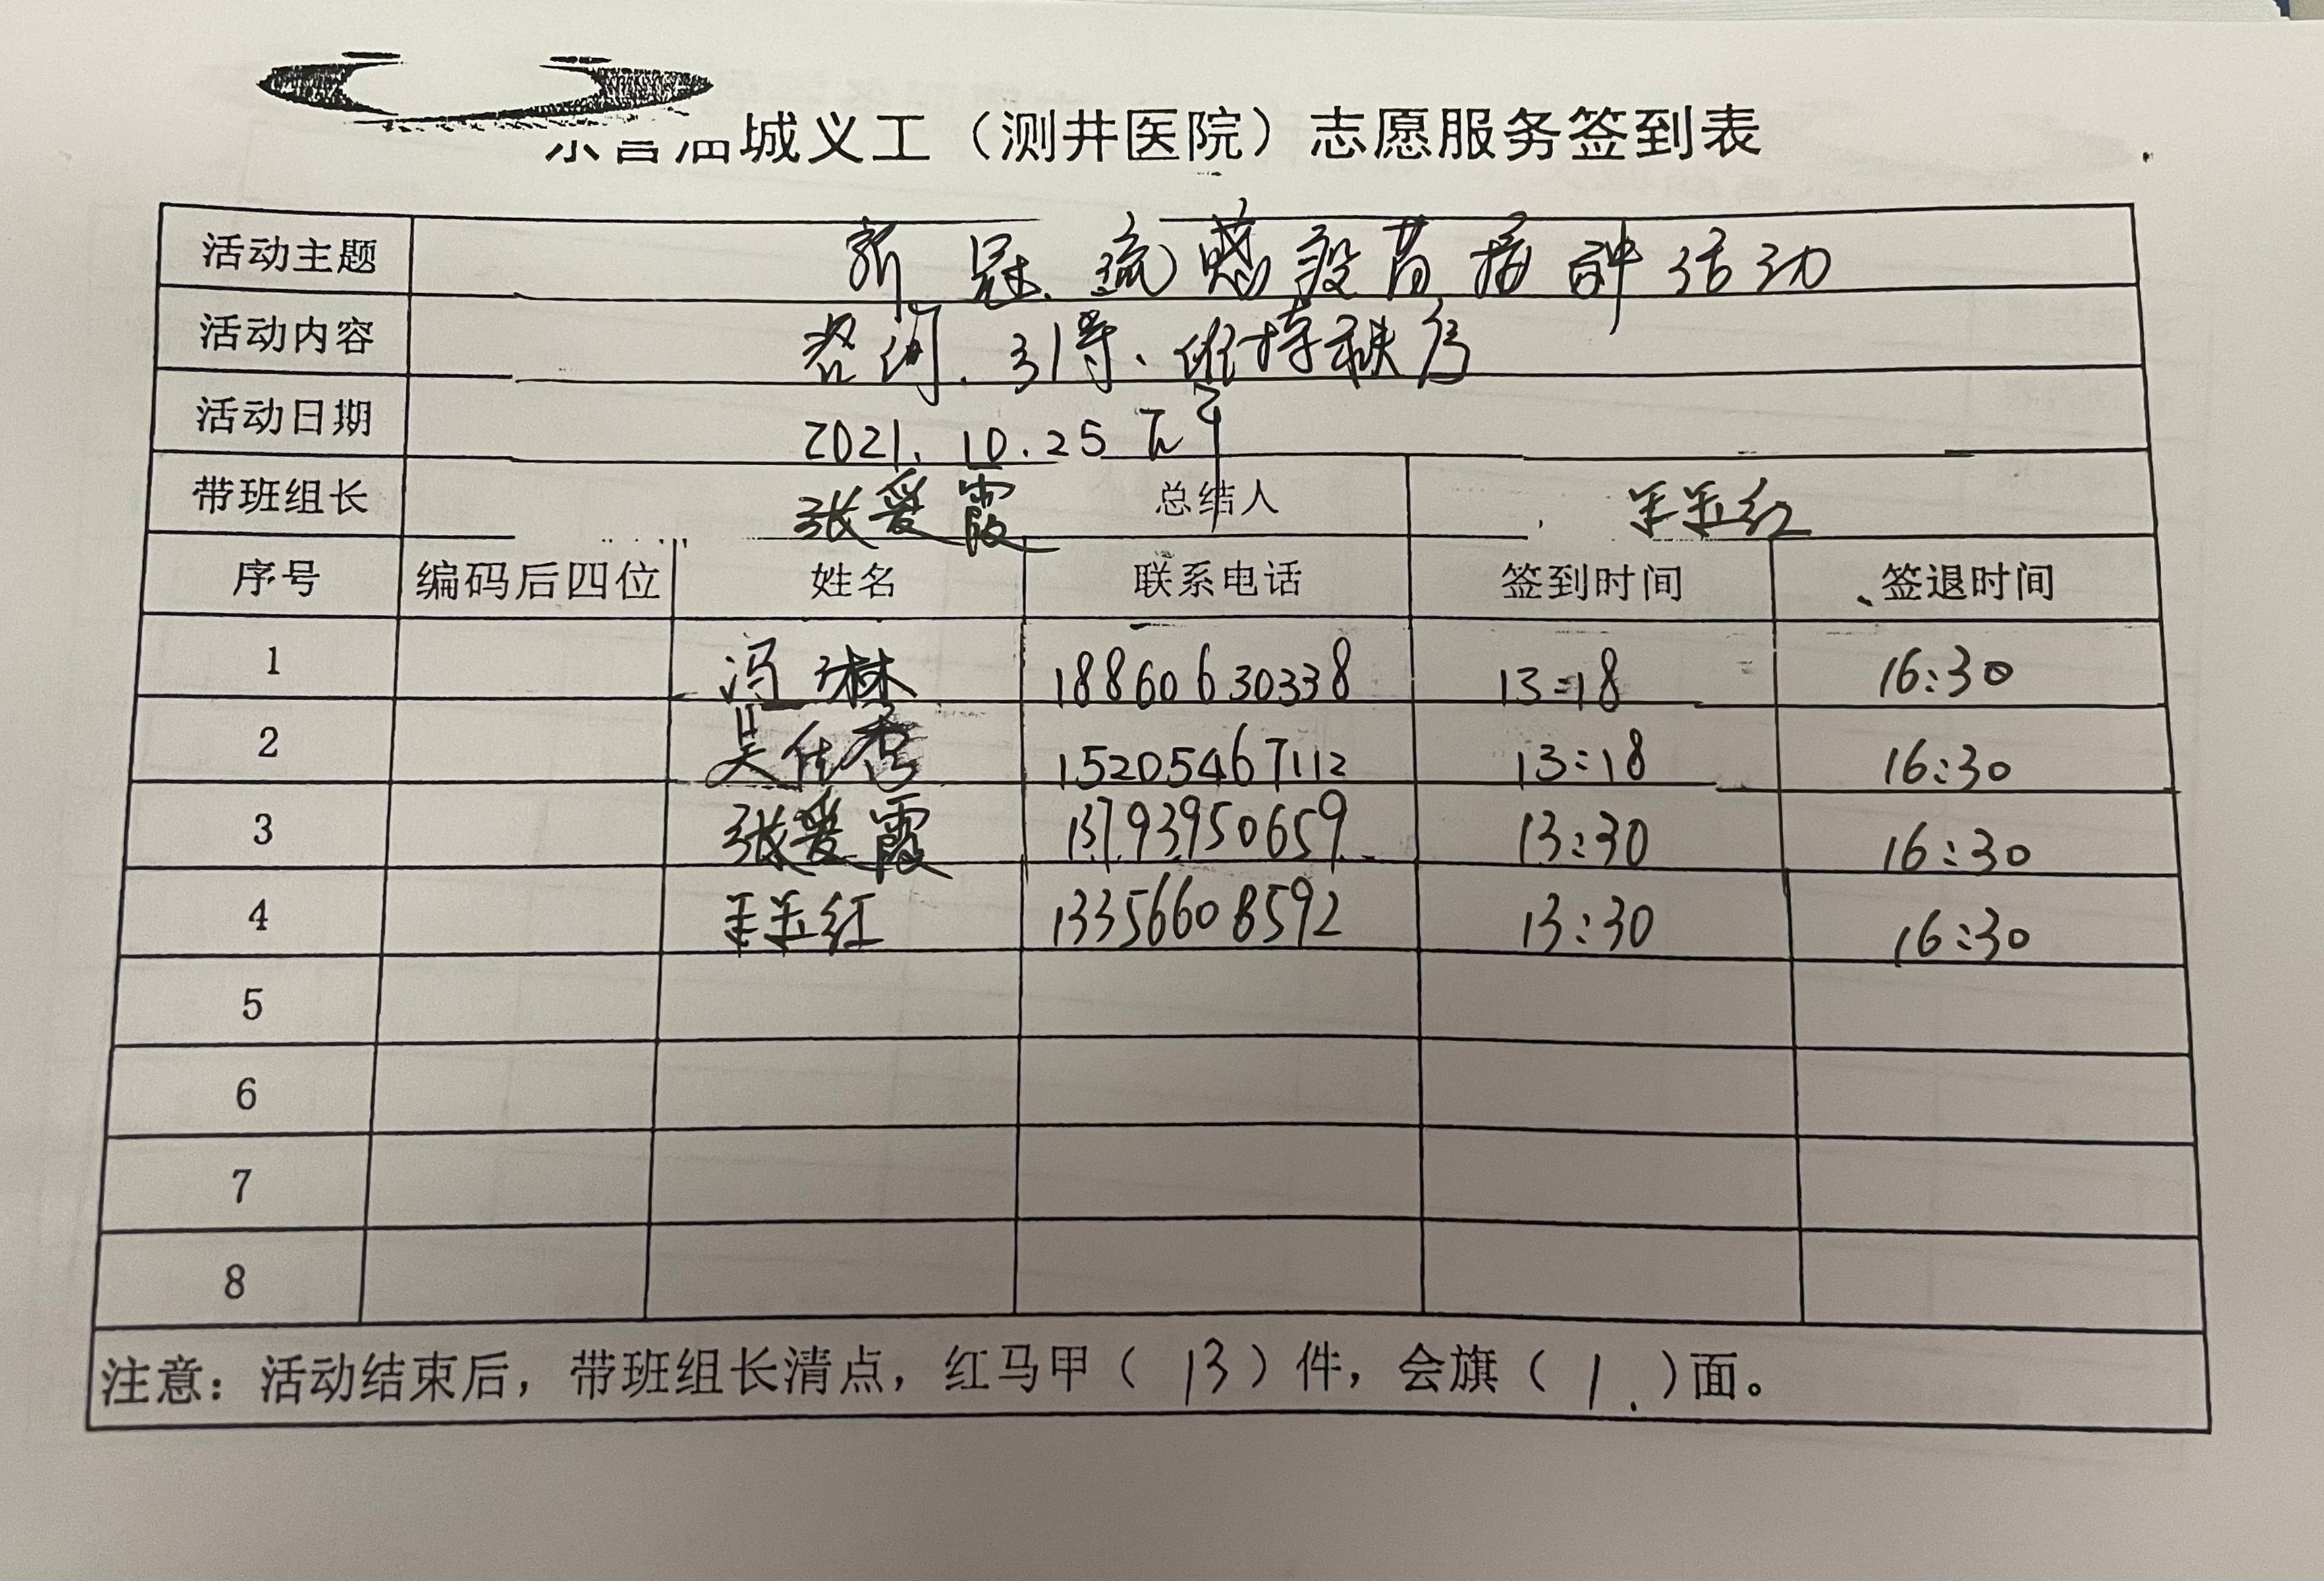 东营油城义工（测井医院）志愿服务签到表
活动主题 新冠.流感疫苗接种活动
活动内容 咨询.引导、维持秩序
活动日期 2021.10.25 下午
带班组长 张爱霞 总结人 王玉红
序号 编码后四位 姓名 联系电话 签到时间 签退时间
1 冯琳 18860630338 13:18 16:30
2 吴 秀 15205467112 13:18 16:30
3 张爱霞 13793950659 13:30 16:30
4 王玉红 13356608592 13:30 16:30
5
6
7
8
注意：活动结束后，带班组长清点，红马甲（ 13 ）件，会旗（ 1. ）面。